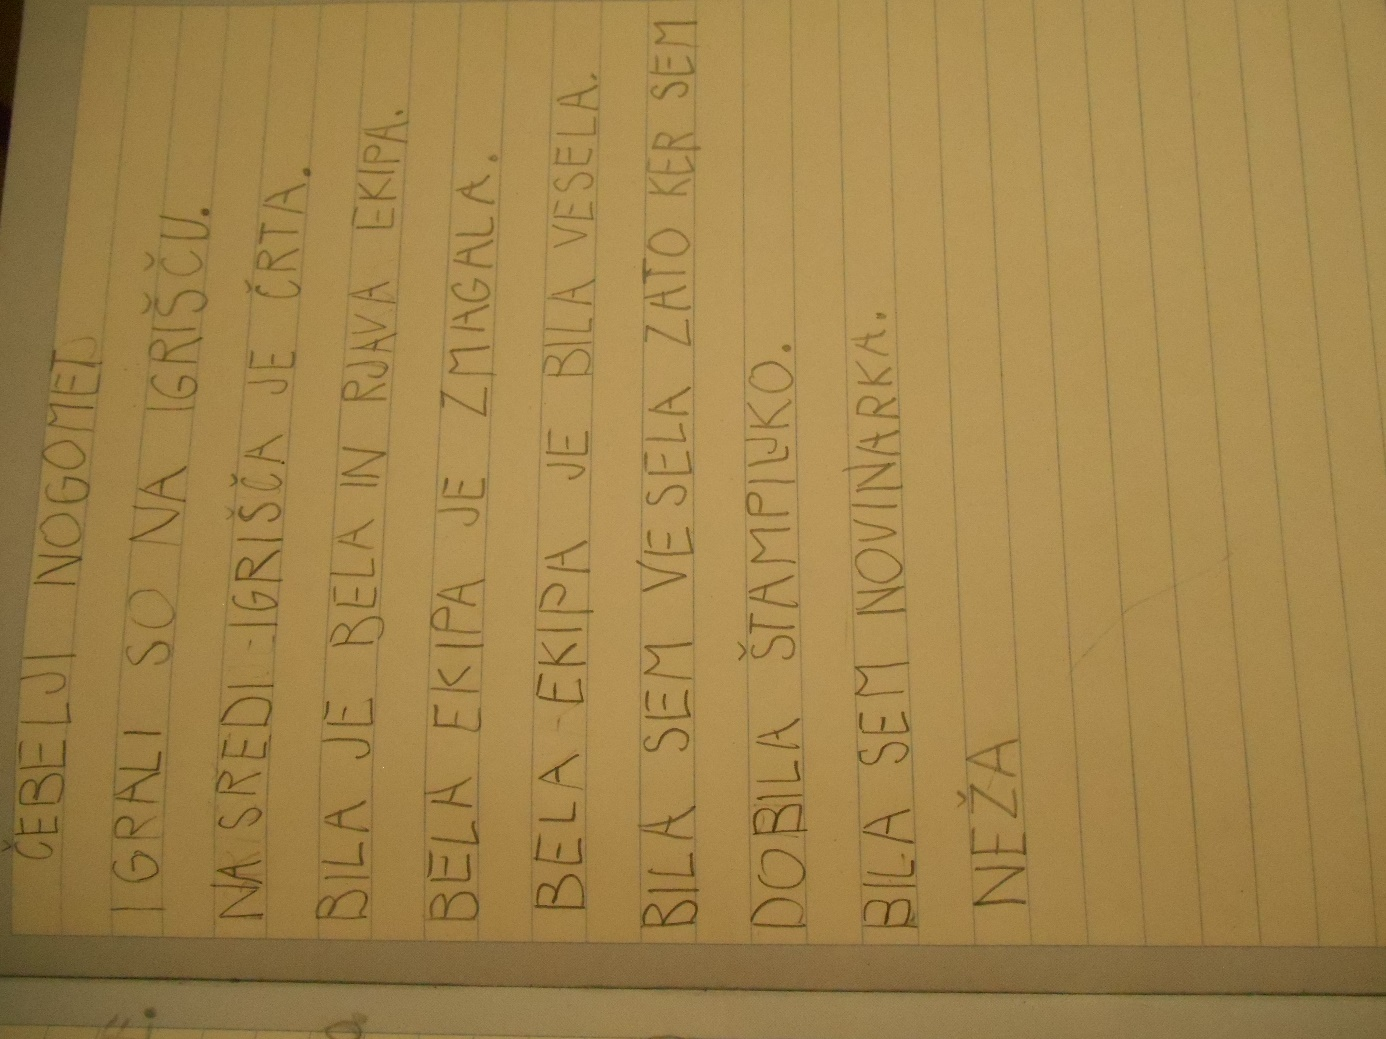 ČEBELJI NOGOMET
IGRALI SO NA IGRIŠČU.
NA SREDI IGRIŠČA JE ČRTA.
BILA JE BELA IN RJAVA EKIPA.
BELA EKIPA JE ZMAGALA.
BELA EKIPA JE BILA VESELA.
BILA SEM VESELA ZATO KER SEM
DOBILA ŠTAMPILJKO.
BILA SEM NOVINARKA.
NEŽA